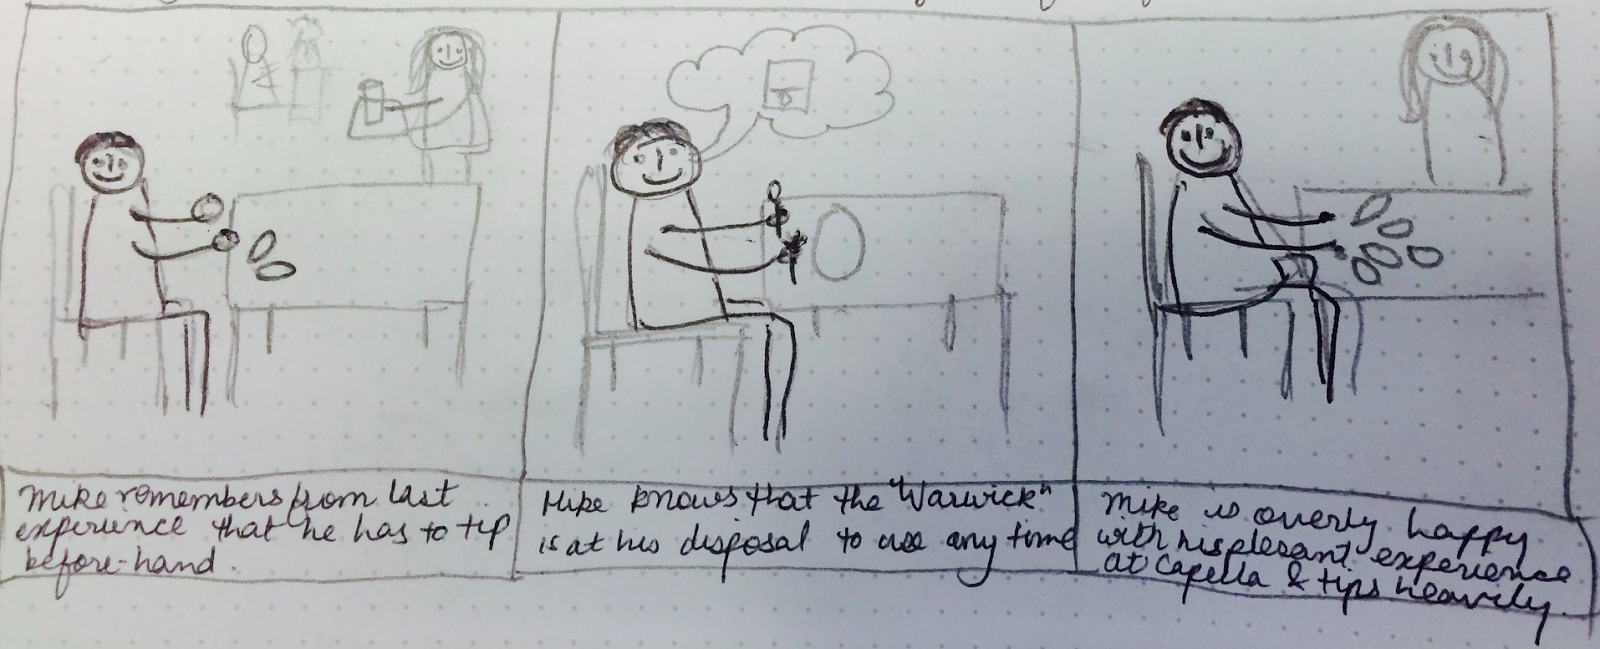 Mike remembers from last
experience that he has to tip
before-hand.
Mike knows that the "Warwick"
is at his disposal to use any time
Mike is overly happy
with his plesant experience
at Capella & tips heavily.